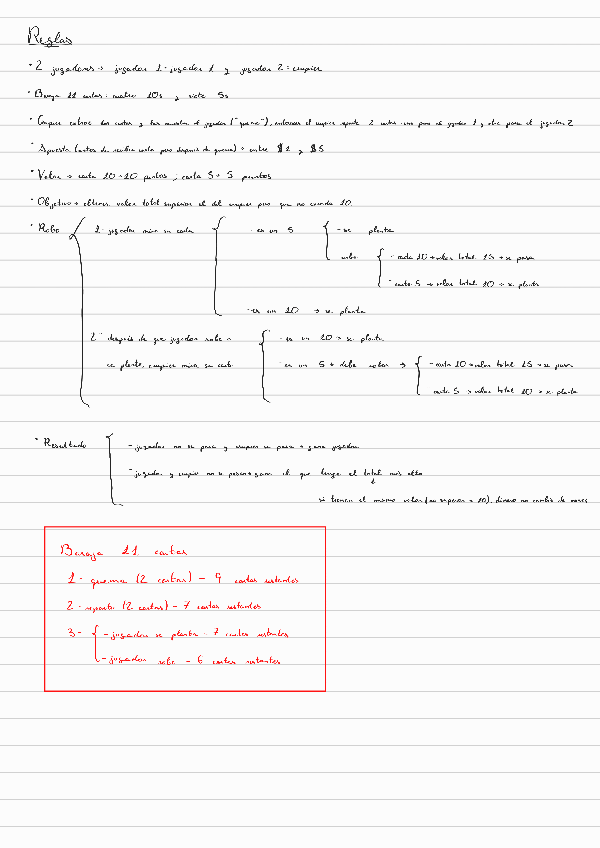 Reglas
· 2 jugadores → jugador 1 = jugador 1 y jugador 2 = crupier
· Baraja 11 cartas: cuatro 10s y siete 5s
· Crupier extrae dos cartas y las muestra al jugador ("quema"), entonces el crupier reparte 2 cartas: una para el jugador 1 y otra para el jugador 2
· Apuesta (antes de recibir carta pero después de quema) → entre $1 y $5
· Valor → carta 10 = 10 puntos ; carta 5 = 5 puntos
· Objetivo → obtener valor total superior al del crupier pero que no exceda 10
· Robo
1- jugador mira su carta
- es un 5
- se planta
roba
- carta 10 → valor total 15 → se pasa
- carta 5 → valor total 10 → se planta
- es un 10 → se planta
2- después de que jugador robe o
se plante, crupier mira su carta
- es un 10 → se planta
- es un 5 → debe robar →
- carta 10 → valor total 15 → se pasa
carta 5 → valor total 10 → se planta
· Resultado
- jugador no se pasa y crupier se pasa → gana jugador
- jugador y crupier no se pasan → gana el que tenga el total más alto
si tienen el mismo valor (no superior a 10), dinero no cambia de manos
Baraja 11 cartas
1- quema (2 cartas) - 9 cartas restantes
2- reparto (2 cartas) - 7 cartas restantes
3-
- jugador se planta - 7 cartas restantes
- jugador roba - 6 cartas restantes